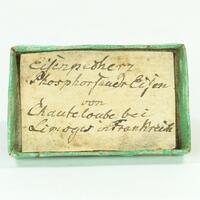 Eisenpecherz
Phosphorsaures Eisen
von
Chanteloube bei
Limoges in Frankreich